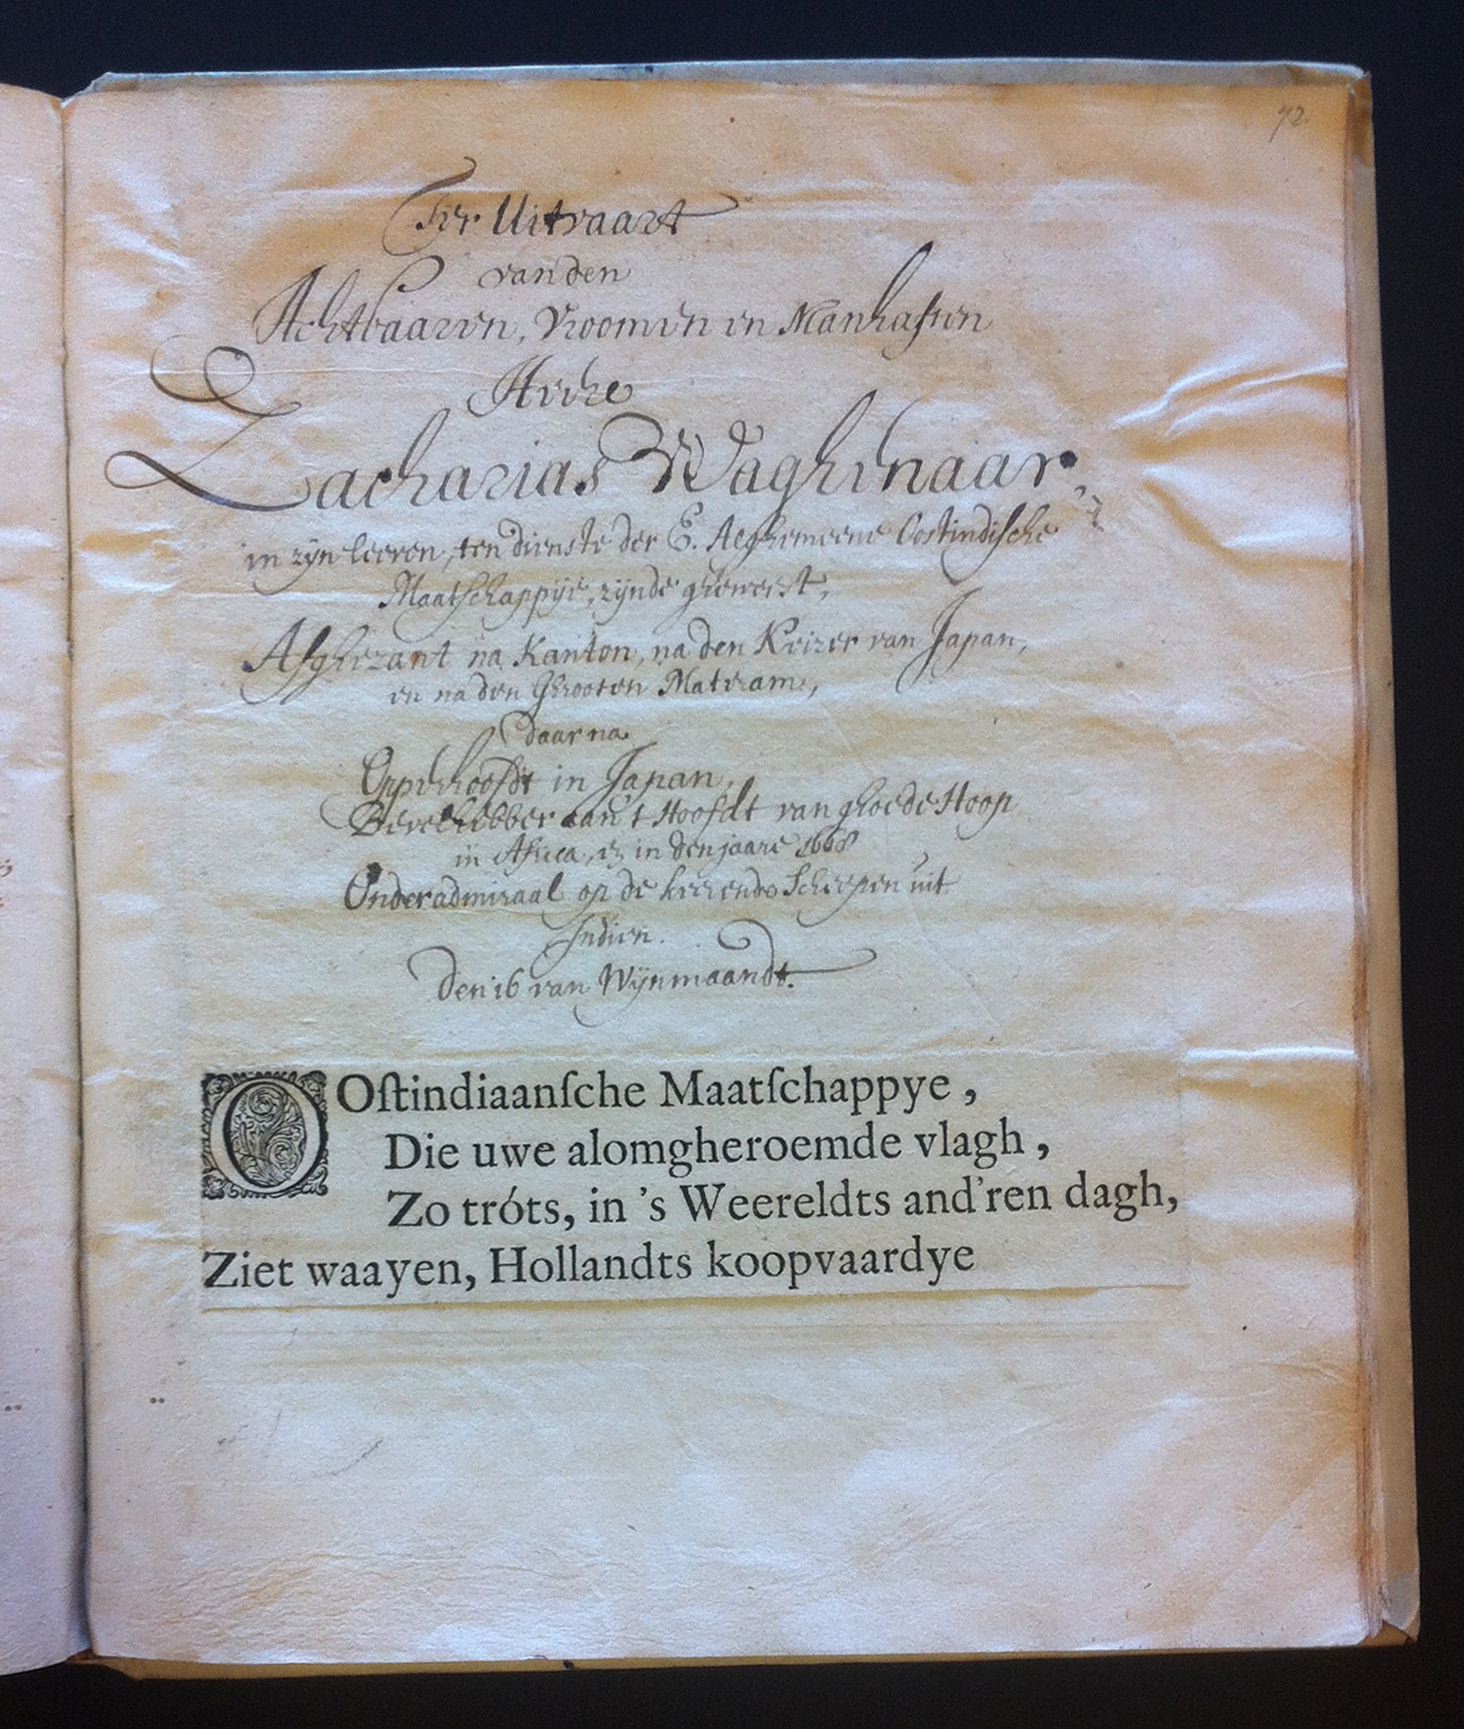 72.
Ter Uitvaart
van den
Achtbaaren, Vroomen en Manhaften
Heere
Zacharias Waghenaar,
in zyn leeven, ten dienste der E. Alghemeene Oostindische
Maatschappye, zynde gheweest,
Afghezant na Kanton, na den Keizer van Japan,
en na den Grooten Materam,
daar na
Opperhooft in Japan,
Bevelhebber aan 't Hoofdt van ghoede Hoop
in Africa, en in den jaare 1668
Onderadmiraal op de keerende Scheepen uit
Indien.
Den 16 van Wynmaandt.
OOſtindiaanſche Maatſchappye ,
Die uwe alomgheroemde vlagh ,
Zo tróts, in 's Weereldts and'ren dagh,
Ziet waayen, Hollandts koopvaardye